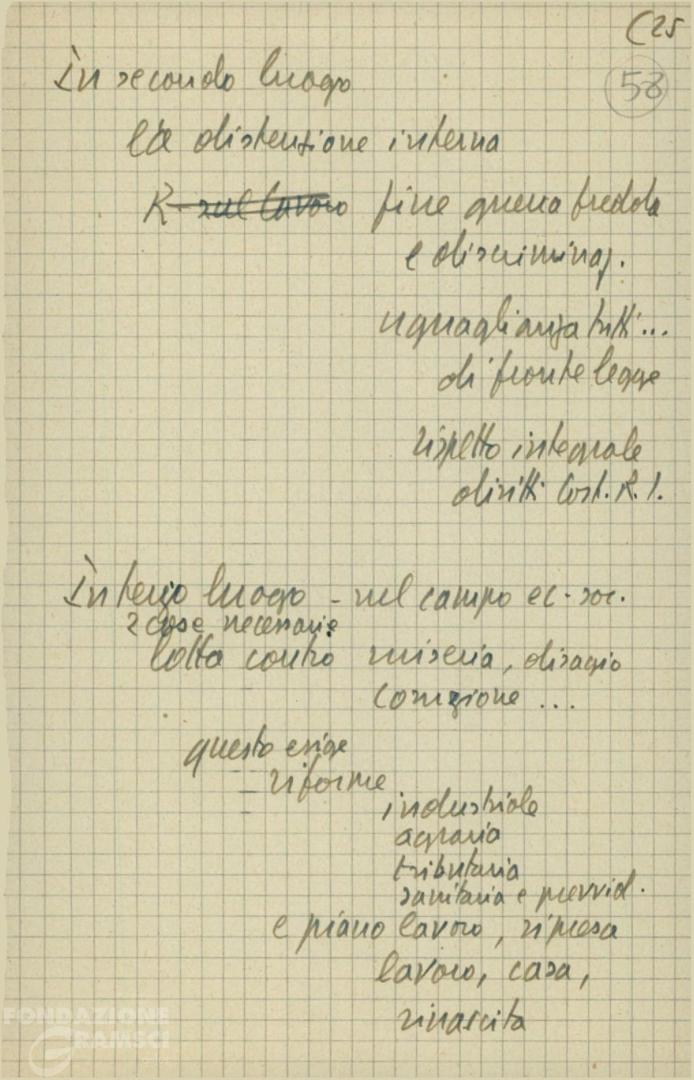 (25
58
In secondo luogo
la distensione interna
R. sul lavoro fine guerra fredda
e discriminaz.
uguaglianza tutti...
di fronte legge
rispetto integrale
diritti Cost. R. I.
In terzo luogo - nel campo ec-soc.
2 cose necessarie
lotta contro miseria, disagio
corruzione ...
questo esige
- riforme
industriale
agraria
tributaria
sanitaria e previd.
e piano lavoro, ripresa
lavoro, casa,
rinascita
FONDAZIONE
GRAMSCI